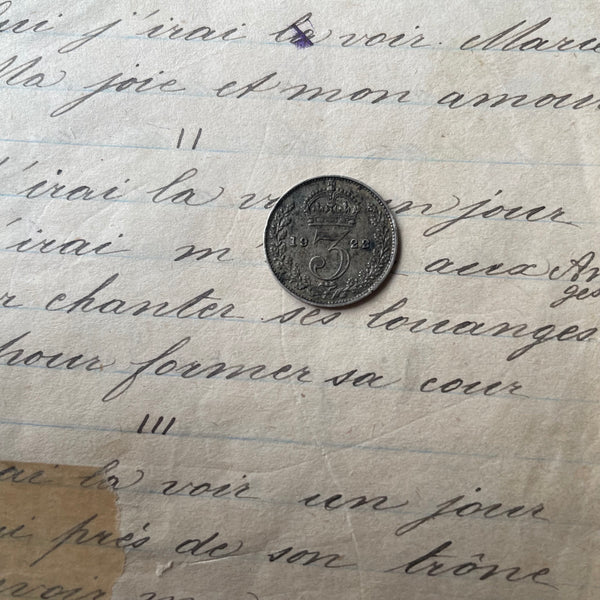 ui j'irai la voir. Marie
Ma joie et mon amour
II
J'irai la voir un jour
J'irai m aux Anges
19 3 22
r chanter ses louanges
pour former sa cour
III
rai la voir un jour
ui prés de son trône